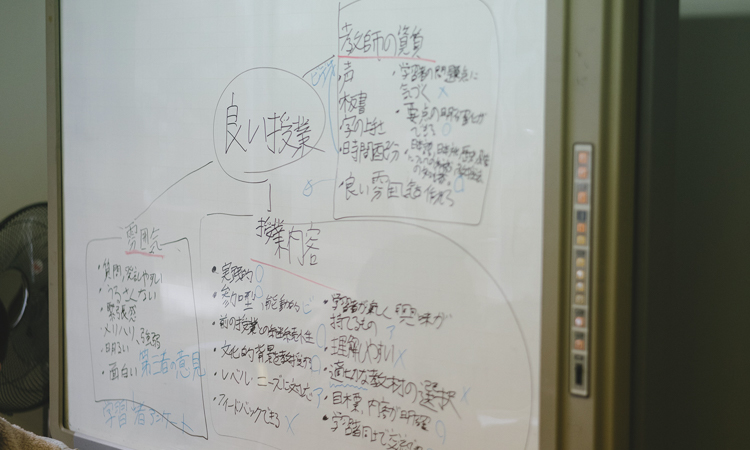 良い授業
ビデオ
教師の資質
・声
・学習者の問題点に
気づく ×
・板書
・要点の明確化が
できる ○
・字の上手さ
・時間配分
・良い雰囲気を作れる
雰囲気
・質問、発言しやすい
・うるさくない
・緊張感
・メリハリ、強弱
・明るい
・面白い 第三者の意見
学習者アンケート
授業内容
・実践的 ○
・参加型、能動的 ビ
・前の授業との継続性 ○
・文化的背景
・レベル・ニーズに ア
・フィードバックできる ×
・学習者が楽しく興味が
持てるもの ア
・理解しやすい ×
・適切な教材の選択 ×
・目標、内容が明確 ○
・学習者同士で